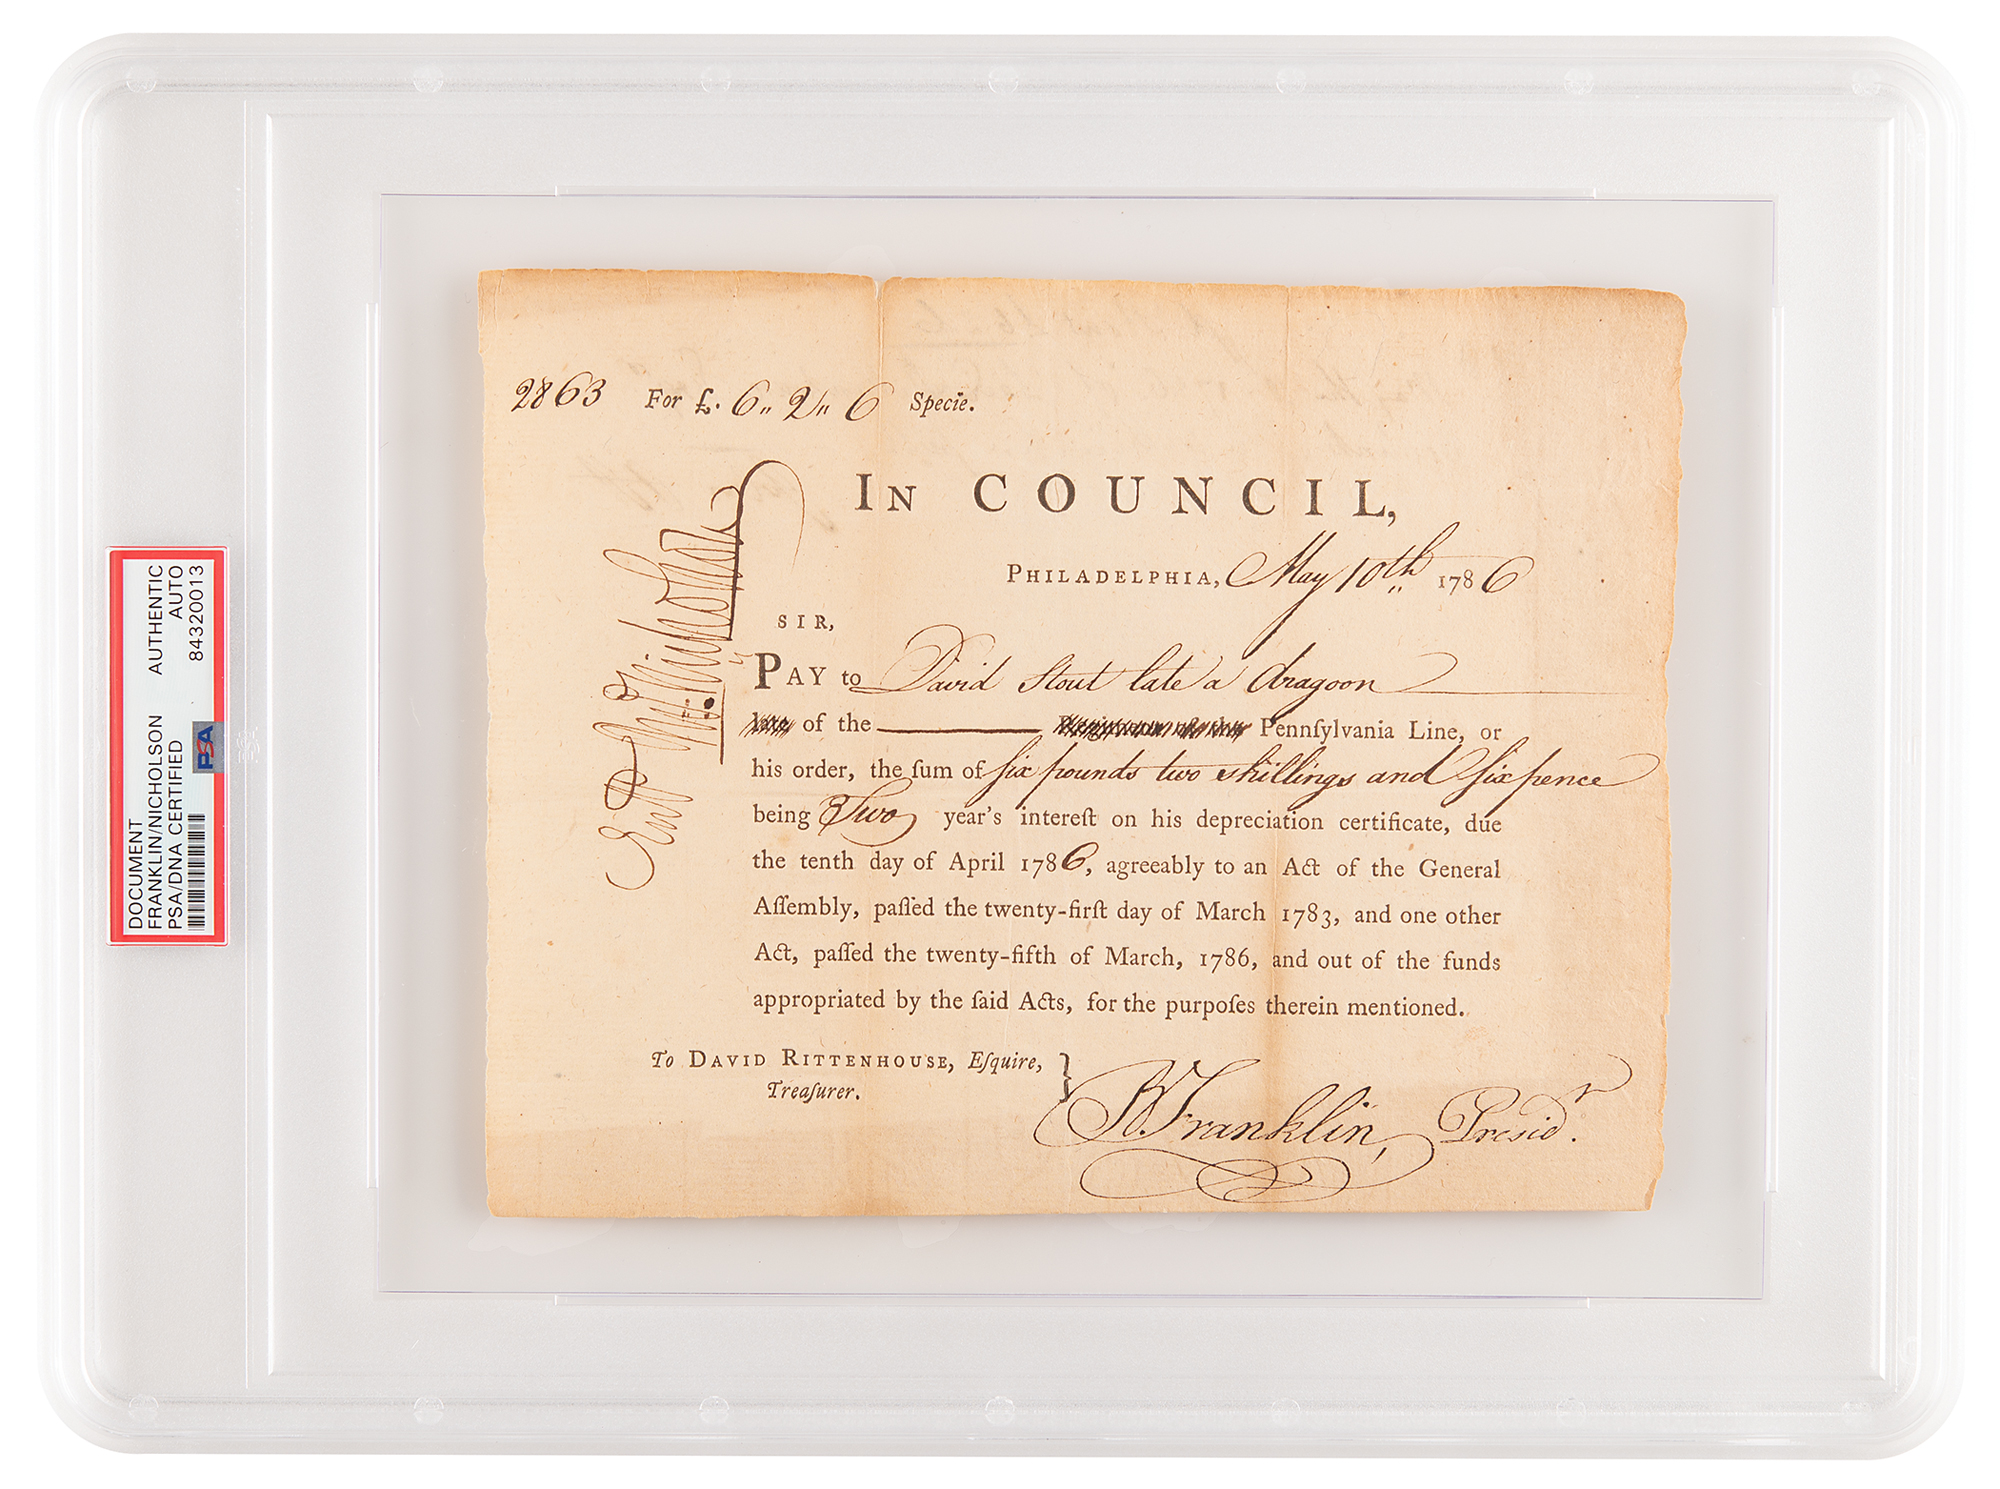 DOCUMENT AUTHENTIC
FRANKLIN/NICHOLSON AUTO
PSA/DNA CERTIFIED 84320013
PSA
2863 For £. 6,, 2,, 6 Specie.
In COUNCIL,
Philadelphia, May 10th 1786
SIR,
Pay to David Stout late a dragoon
of the Pennſylvania Line, or
his order, the ſum of six pounds two shillings and six pence
being Two year's intereſt on his depreciation certificate, due
the tenth day of April 1786, agreeably to an Act of the General
Aſſembly, paſſed the twenty-firſt day of March 1783, and one other
Act, paſſed the twenty-fifth of March, 1786, and out of the funds
appropriated by the ſaid Acts, for the purpoſes therein mentioned.
To David Rittenhouse, Eſquire,
Treaſurer.
B. Franklin, Presidr.
Jno. Nicholson